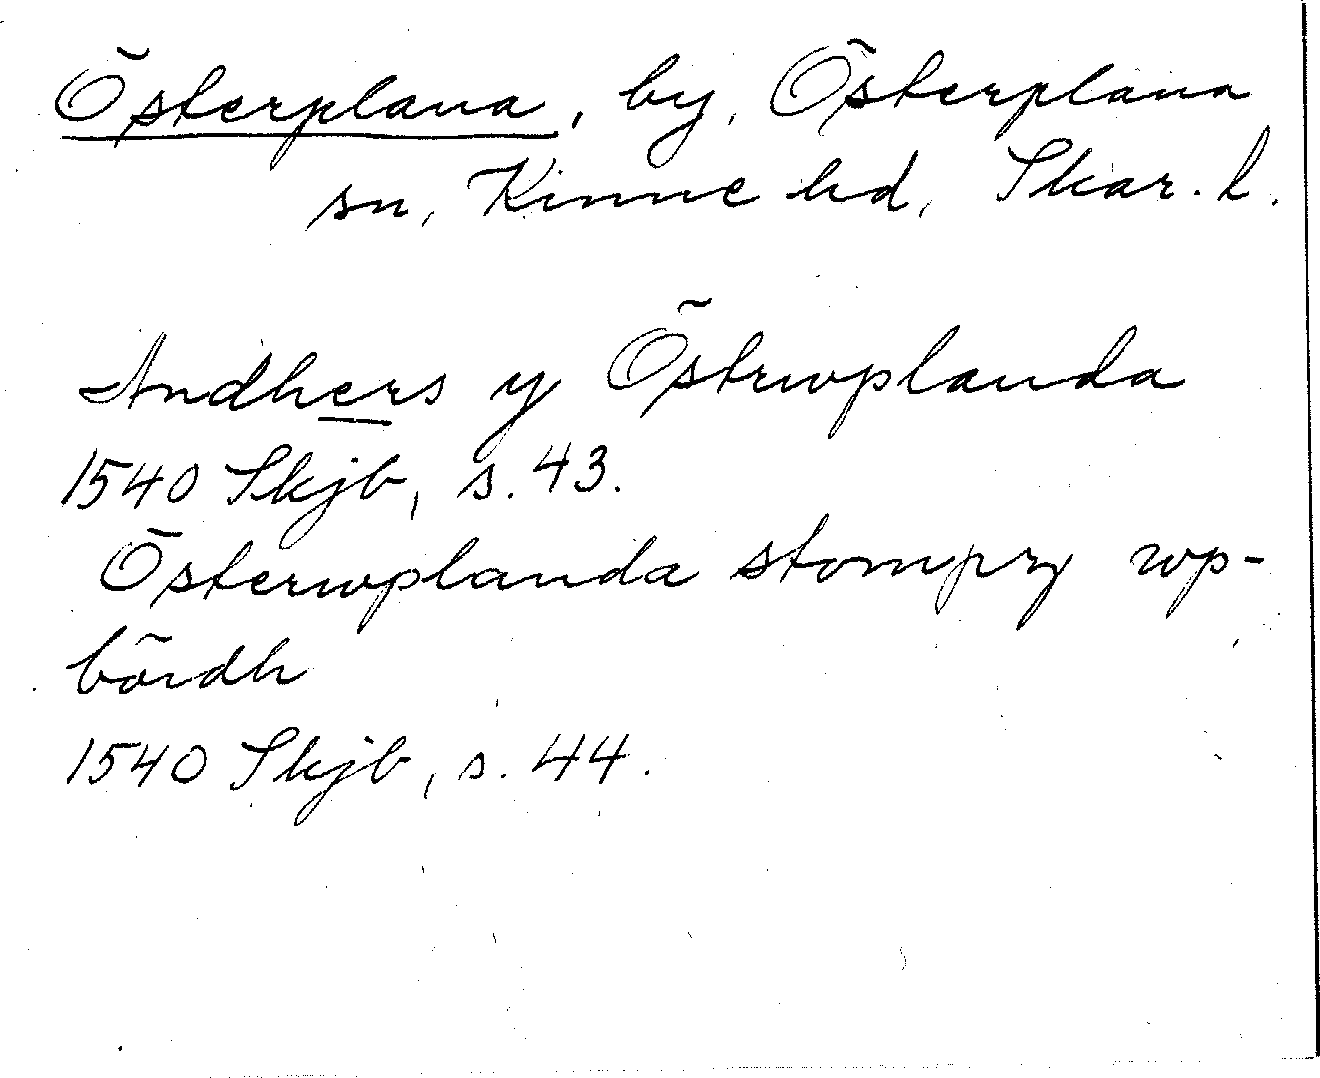 Österplana, by, Österplana
sn, Kinne hd, Skar. l.
Andhers y Östrwplanda
1540 Skjb, s. 43.
Österwplanda stompn wp-
bördh
1540 Skjb, s. 44.